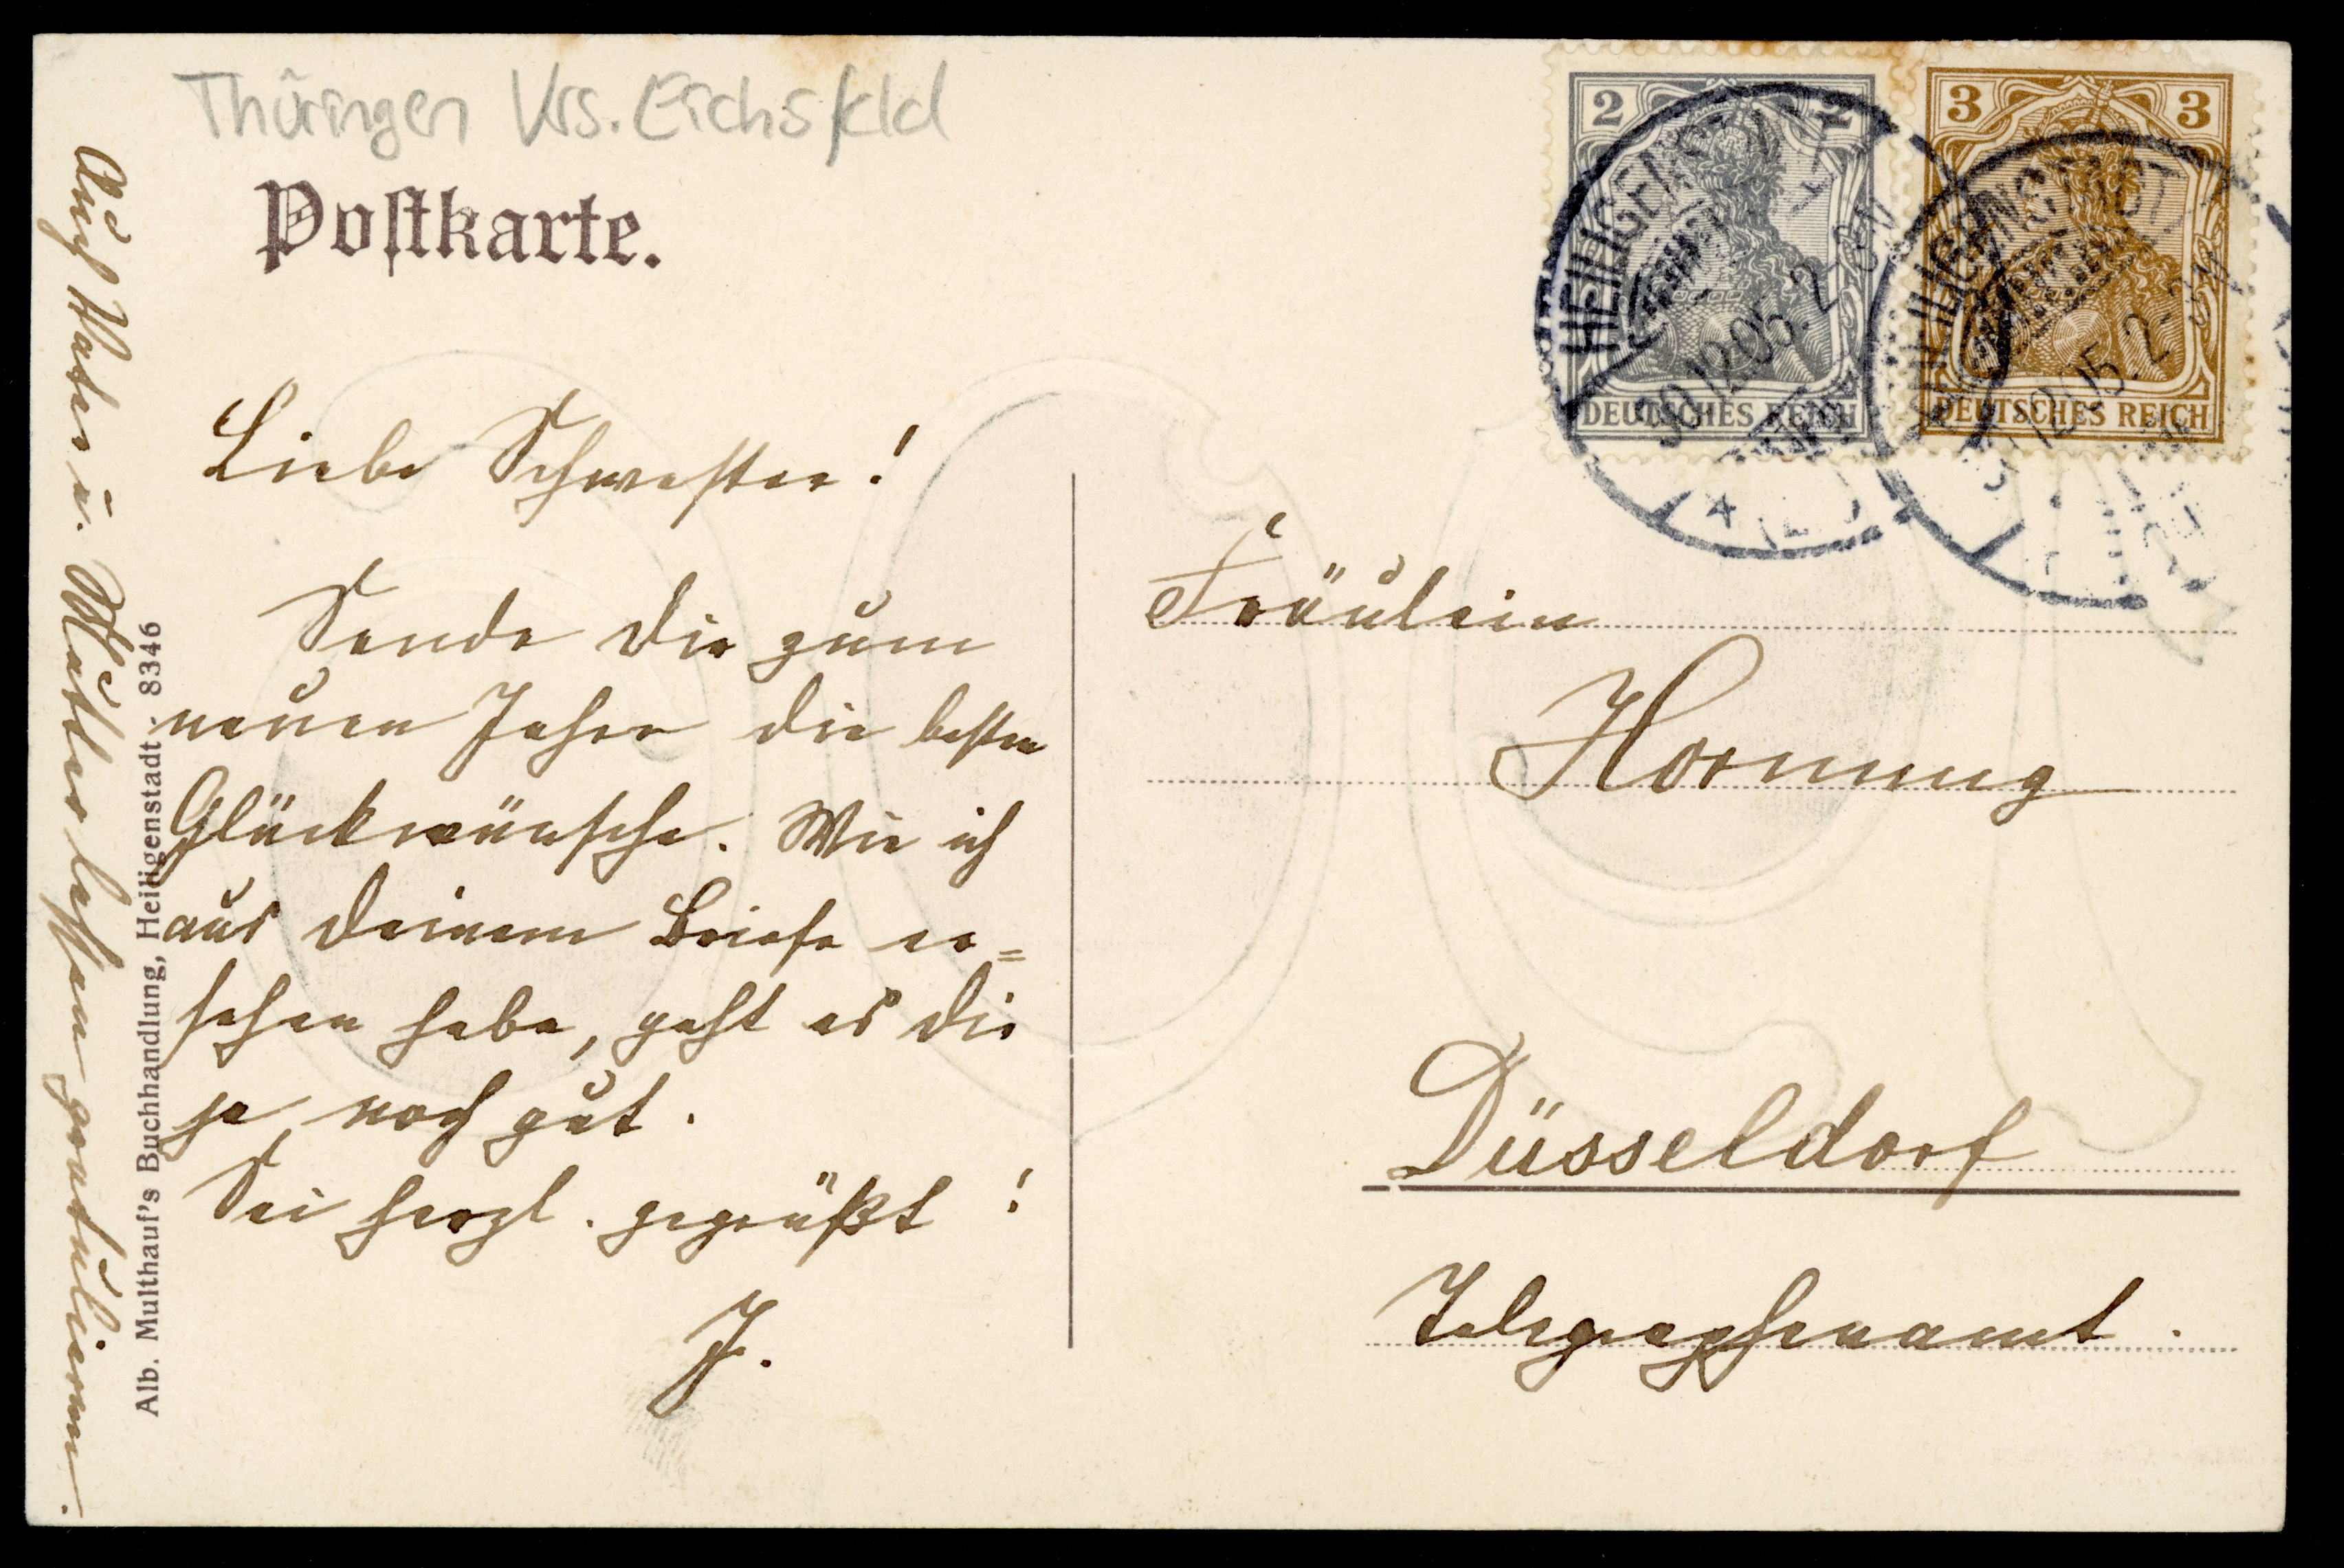 Thüringen Krs. Eichsfeld
Postkarte.
2 2
DEUTSCHES REICH
3 3
DEUTSCHES REICH
HEILIGENSTADT
30.12.05. 2-3N
HEILIGENSTADT
12.05. 2-3N
Liebe Schwester!
Sende Dir zum
neuen Jahre die besten
Glückwünsche. Wie ich
aus Deinem Briefe er=
sehen habe, geht es Dir
ja noch gut.
Sei herzl. gegrüßt!
J.
Auch Vater u. Mutter lassen gratulieren.
Alb. Multhauf's Buchhandlung, Heiligenstadt - 8346
Fräulein
Hornung
Düsseldorf
Telegraphenamt.